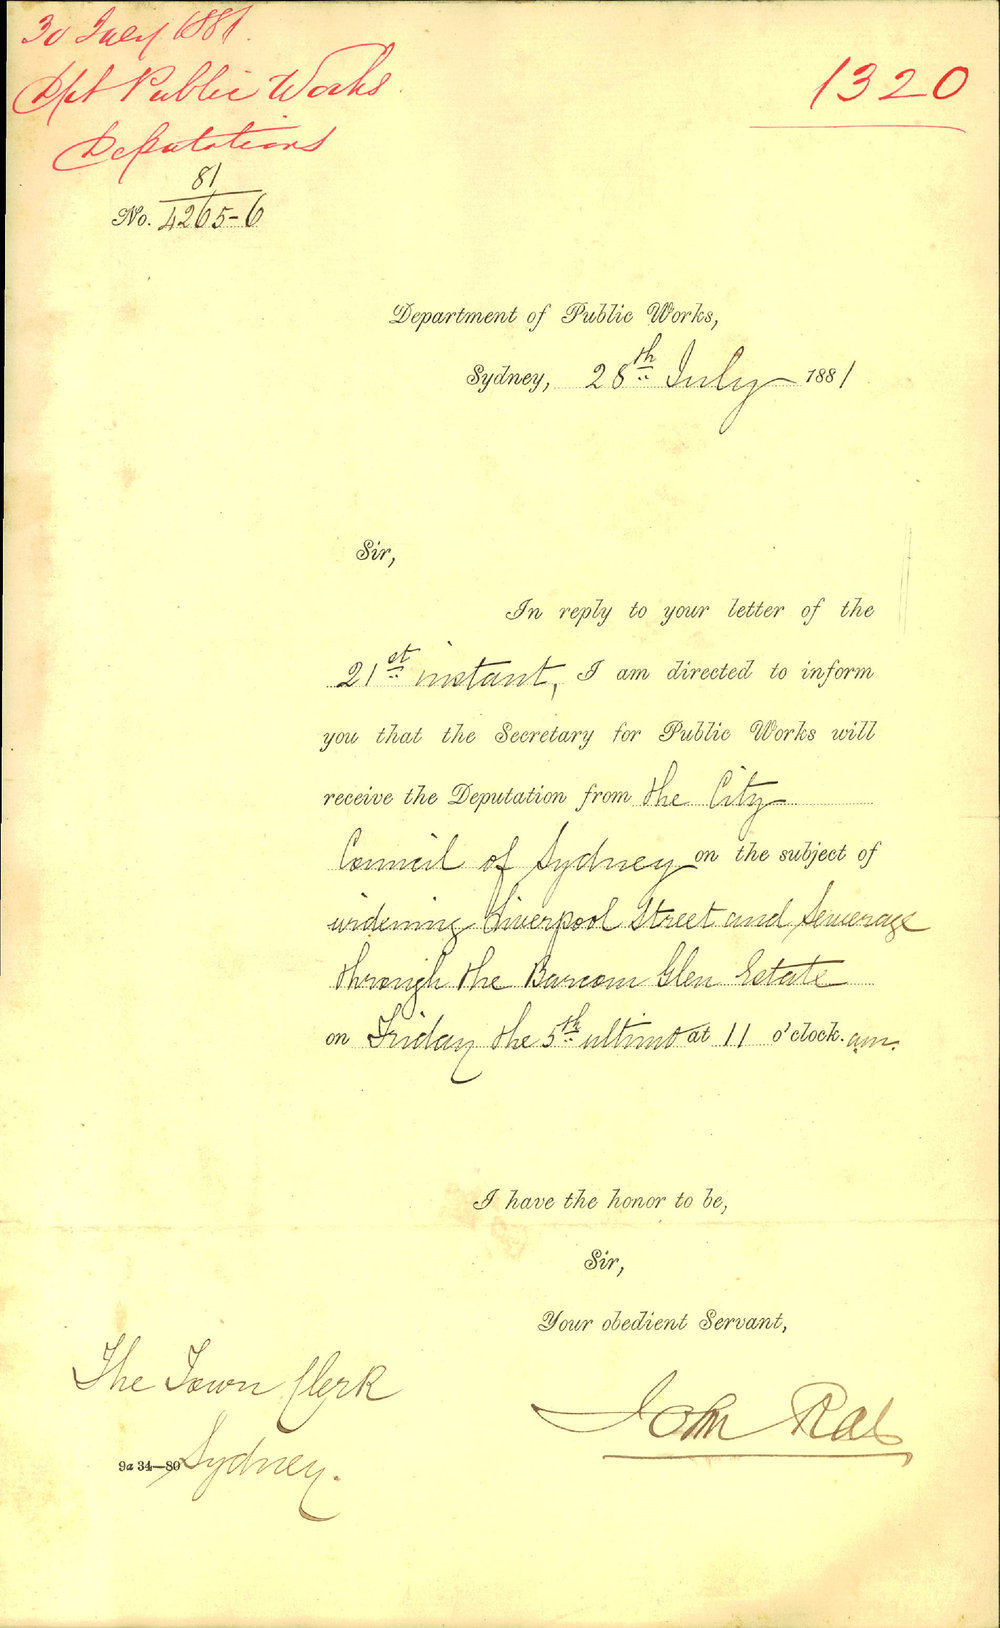 30 July 1881.
Dpt Public Works
Deputations
1320
81
No. 4265-6
Department of Public Works,
Sydney, 28th July 1881
Sir,
In reply to your letter of the
21st instant, I am directed to inform
you that the Secretary for Public Works will
receive the Deputation from the City
Council of Sydney on the subject of
widening Liverpool Street and Sewerage
through the Barcom Glen Estate
on Friday the 5th ultimo at 11 o'clock. am.
I have the honor to be,
Sir,
Your obedient Servant,
John Rae
The Town Clerk
Sydney.
9a 34—80